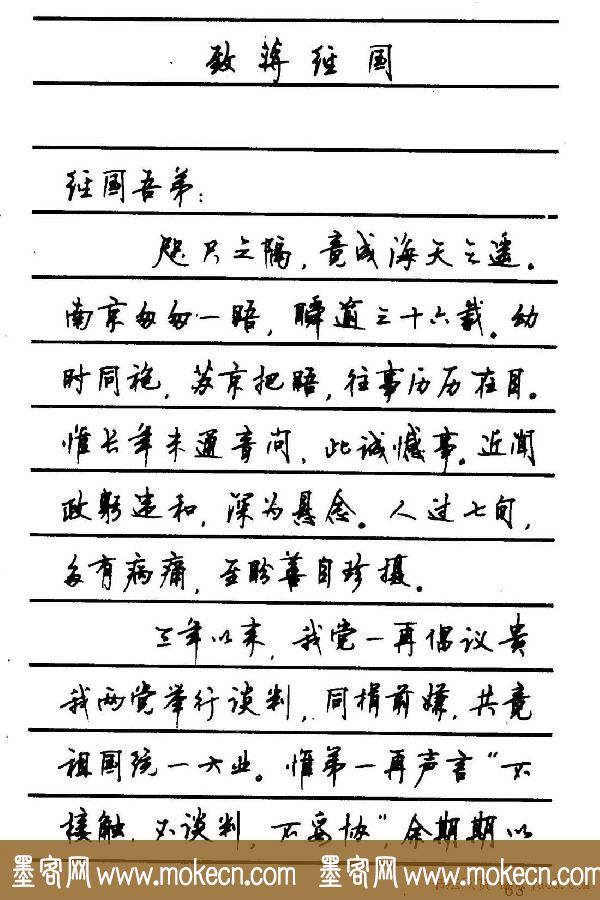 致蒋经国
经国吾弟：
咫尺之隔，竟成海天之遥。
南京匆匆一晤，瞬逾三十六载。幼
时同袍，苏京把晤，往事历历在目。
惟长年未通音问，此诚憾事。近闻
政躬违和，深为悬念。人过七旬，
多有病痛，至盼善自珍摄。
三年以来，我党一再倡议贵
我两党举行谈判，同捐前嫌，共竟
祖国统一大业。惟弟一再声言“不
接触，不谈判，不妥协”，余期期以
墨客网www.mokecn.com 墨客网www.mokecn.com
63